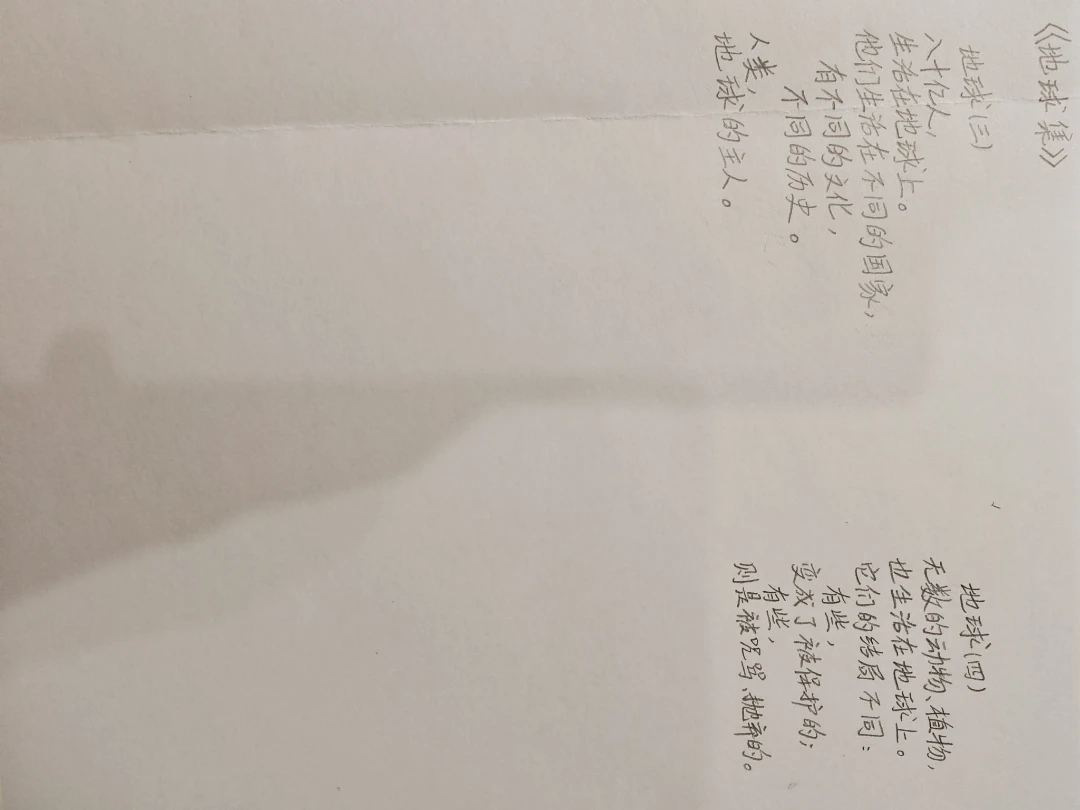 《地球集》
地球(三)
八十亿人,
生活在地球上。
他们生活在不同的国家,
有不同的文化,
不同的历史。
人类,
地球的主人。
地球(四)
无数的动物、植物,
也生活在地球上。
它们的结局不同:
有些,
变成了被保护的;
有些,
则是被咒骂、抛弃的。